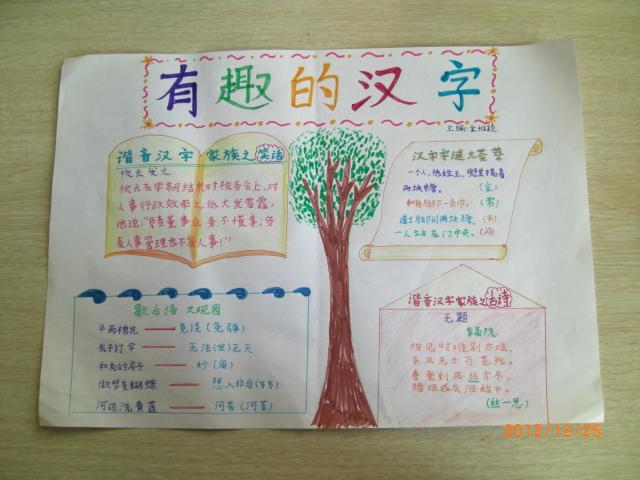 有趣的汉字
主编:金
谐音汉字家族之笑话
校长发之
校长在学期结束时校务会上,对
人事行政效率之低大发雷霆,
他说:"负责董事业务不懂事,负
责人事管理也不省人事!"
汉字字谜大荟萃
一个人,他姓王,兜里揣着
两块糖。(金)
一人站在门中央。(闪)
歇后语 大观园
免谈(免弹)
无法(发)无天
和尚的房子 妙(庙)
做梦变蝴蝶 想入非非(飞飞)
河边洗黄莲 何苦(河苦)
谐音汉字家族之古诗
无题
李商隐
相见时难别亦难,
东风无力百花残。
春蚕到死丝方尽,
(丝—思)
2012/12/25